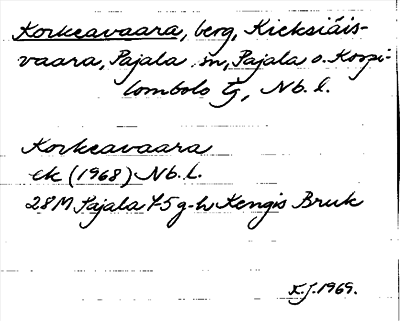 Korkeavaara, berg, Kieksiäis-
vaara, Pajala sn, Pajala o. Korpi-
lombolo tg, Nb. l.
Korkeavaara
ek (1968) Nb. l.
28M Pajala 7-5 g-h Kengis Bruk
K.J. 1969.